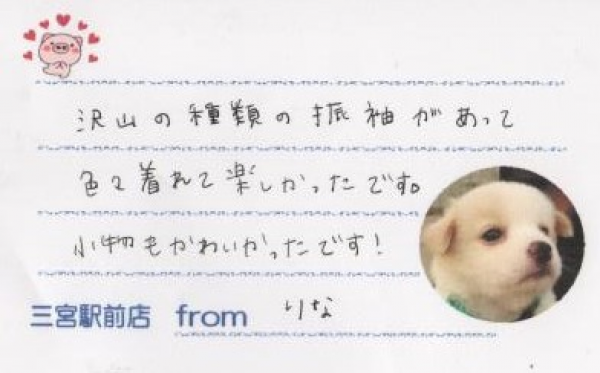 沢山の種類の振袖があって
色々着れて楽しかったです。
小物もかわいかったです!
三宮駅前店 from りな